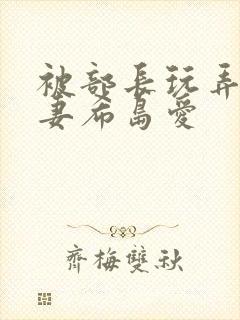 被部長玩弄
妻希島愛
齊梅雙秋